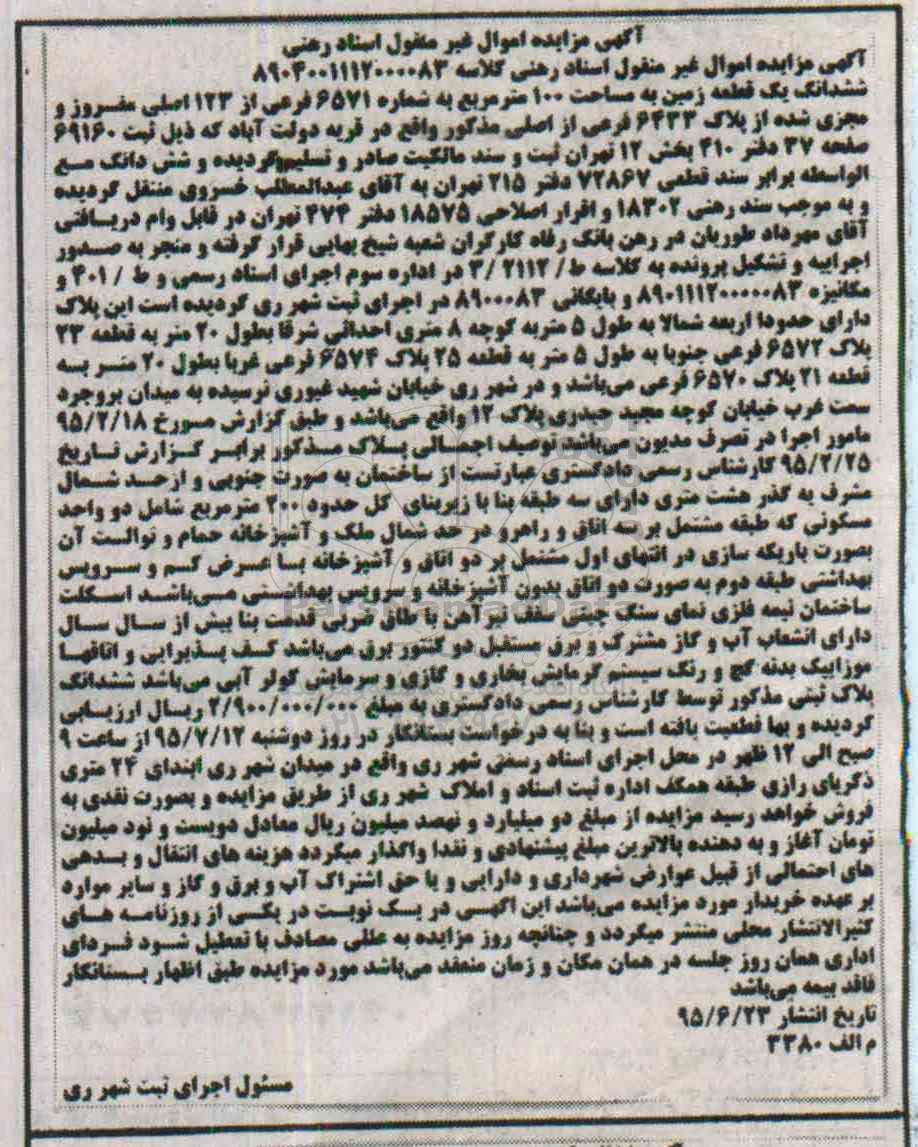 آگهی مزایده اموال غیر منقول اسناد رهنی
آگهی مزایده اموال غیر منقول اسناد رهنی کلاسه ۸۹۰۴۰۰۱۱۱۲۰۰۰۰۸۳
ششدانگ یک قطعه زمین به مساحت ۱۰۰ مترمربع به شماره ۶۵۷۱ فرعی از ۱۲۳ اصلی مفروز و
مجزی شده از پلاک ۶۴۳۳ فرعی از اصلی مذکور واقع در قریه دولت آباد که ذیل ثبت ۶۹۱۶۰
صفحه ۳۷ دفتر ۴۱۰ بخش ۱۲ تهران ثبت و سند مالکیت صادر و تسلیم گردیده و شش دانگ مع
الواسطه برابر سند قطعی ۷۲۸۶۷ دفتر ۲۱۵ تهران به آقای عبدالمطلب خسروی منتقل گردیده
و به موجب سند رهنی ۱۸۳۰۲ و اقرار اصلاحی ۱۸۵۷۵ دفتر ۴۷۴ تهران در قابل وام دریافتی
آقای مهرداد طوریان در رهن بانک رفاه کارگران شعبه شیخ بهایی قرار گرفته و منجر به صدور
اجراییه و تشکیل پرونده به کلاسه ط/ ۲۱۱۲ /۳ در اداره سوم اجرای اسناد رسمی و ط / ۴۰۱ و
مکانیزه ۸۹۰۱۱۱۲۰۰۰۰۰۸۳ و بایگانی ۸۹۰۰۰۸۳ در اجرای ثبت شهر ری گردیده است این پلاک
دارای حدودا اربعه شمالا به طول ۵ متربه کوچه ۸ متری احداثی شرقا بطول ۲۰ متر به قطعه ۲۳
پلاک ۶۵۷۲ فرعی جنوبا به طول ۵ متر به قطعه ۲۵ پلاک ۶۵۷۴ فرعی غربا بطول ۲۰ متر به
قطعه ۲۱ پلاک ۶۵۷۰ فرعی می‌باشد و در شهر ری خیابان شهید غیوری نرسیده به میدان بروجرد
سمت غرب خیابان کوچه مجید حیدری پلاک ۱۲ واقع می‌باشد و طبق گزارش مورخ ۹۵/۲/۱۸
مامور اجرا در تصرف مدیون می‌باشد توصیف اجمالی پلاک مذکور برابر گزارش تاریخ
۹۵/۲/۲۵ کارشناس رسمی دادگستری عبارتست از ساختمان به صورت جنوبی و ازحد شمال
مشرف به گذر هشت متری دارای سه طبقه بنا با زیربنای کل حدود ۲۰۰ مترمربع شامل دو واحد
مسکونی که طبقه مشتمل بر سه اتاق و راهرو در حد شمال ملک و آشپزخانه حمام و توالت آن
بصورت باریکه سازی در انتهای اول مشتمل بر دو اتاق و آشپزخانه با عرض کم و سرویس
بهداشتی طبقه دوم به صورت دو اتاق بدون آشپزخانه و سرویس بهداشتی می‌باشد اسکلت
ساختمان نیمه فلزی نمای سنگ چینی سقف تیرآهن با طاق ضربی قدمت بنا بیش از سال سال
دارای انشعاب آب و گاز مشترک و برق مستقیل دو کنتور برق می‌باشد کف پذیرایی و اتاقها
موزاییک بدنه گچ و رنگ سیستم گرمایش بخاری و گازی و سرمایش کولر آبی می‌باشد ششدانگ
پلاک ثبتی مذکور توسط کارشناس رسمی دادگستری به مبلغ ۲/۹۰۰/۰۰۰/۰۰۰ ریال ارزیابی
گردیده و بها قطعیت یافته است و بنا به درخواست بستانکار در روز دوشنبه ۹۵/۷/۱۲ از ساعت ۹
صبح الی ۱۲ ظهر در محل اجرای اسناد رسمی شهر ری واقع در میدان شهر ری ابتدای ۲۴ متری
ذکریای رازی طبقه همکف اداره ثبت اسناد و املاک شهر ری از طریق مزایده و بصورت نقدی به
فروش خواهد رسید مزایده از مبلغ دو میلیارد و نهصد میلیون ریال معادل دویست و نود میلیون
تومان آغاز و به دهنده بالاترین مبلغ پیشنهادی و نقدا واگذار میگردد هزینه های انتقال و بدهی
های احتمالی از قبیل عوارض شهرداری و دارایی و یا حق اشتراک آب و برق و گاز و سایر موارد
بر عهده خریدار مورد مزایده می‌باشد این اگهی در یک نوبت در یکی از روزنامه های
کثیرالانتشار محلی منتشر میگردد و چنانچه روز مزایده به عللی مصادف با تعطیل شود فردای
اداری همان روز جلسه در همان مکان و زمان منعقد می‌باشد مورد مزایده طبق اظهار بستانکار
فاقد بیمه می‌باشد
تاریخ انتشار ۹۵/۶/۲۳
م الف ۳۳۸۰
مسئول اجرای ثبت شهر ری